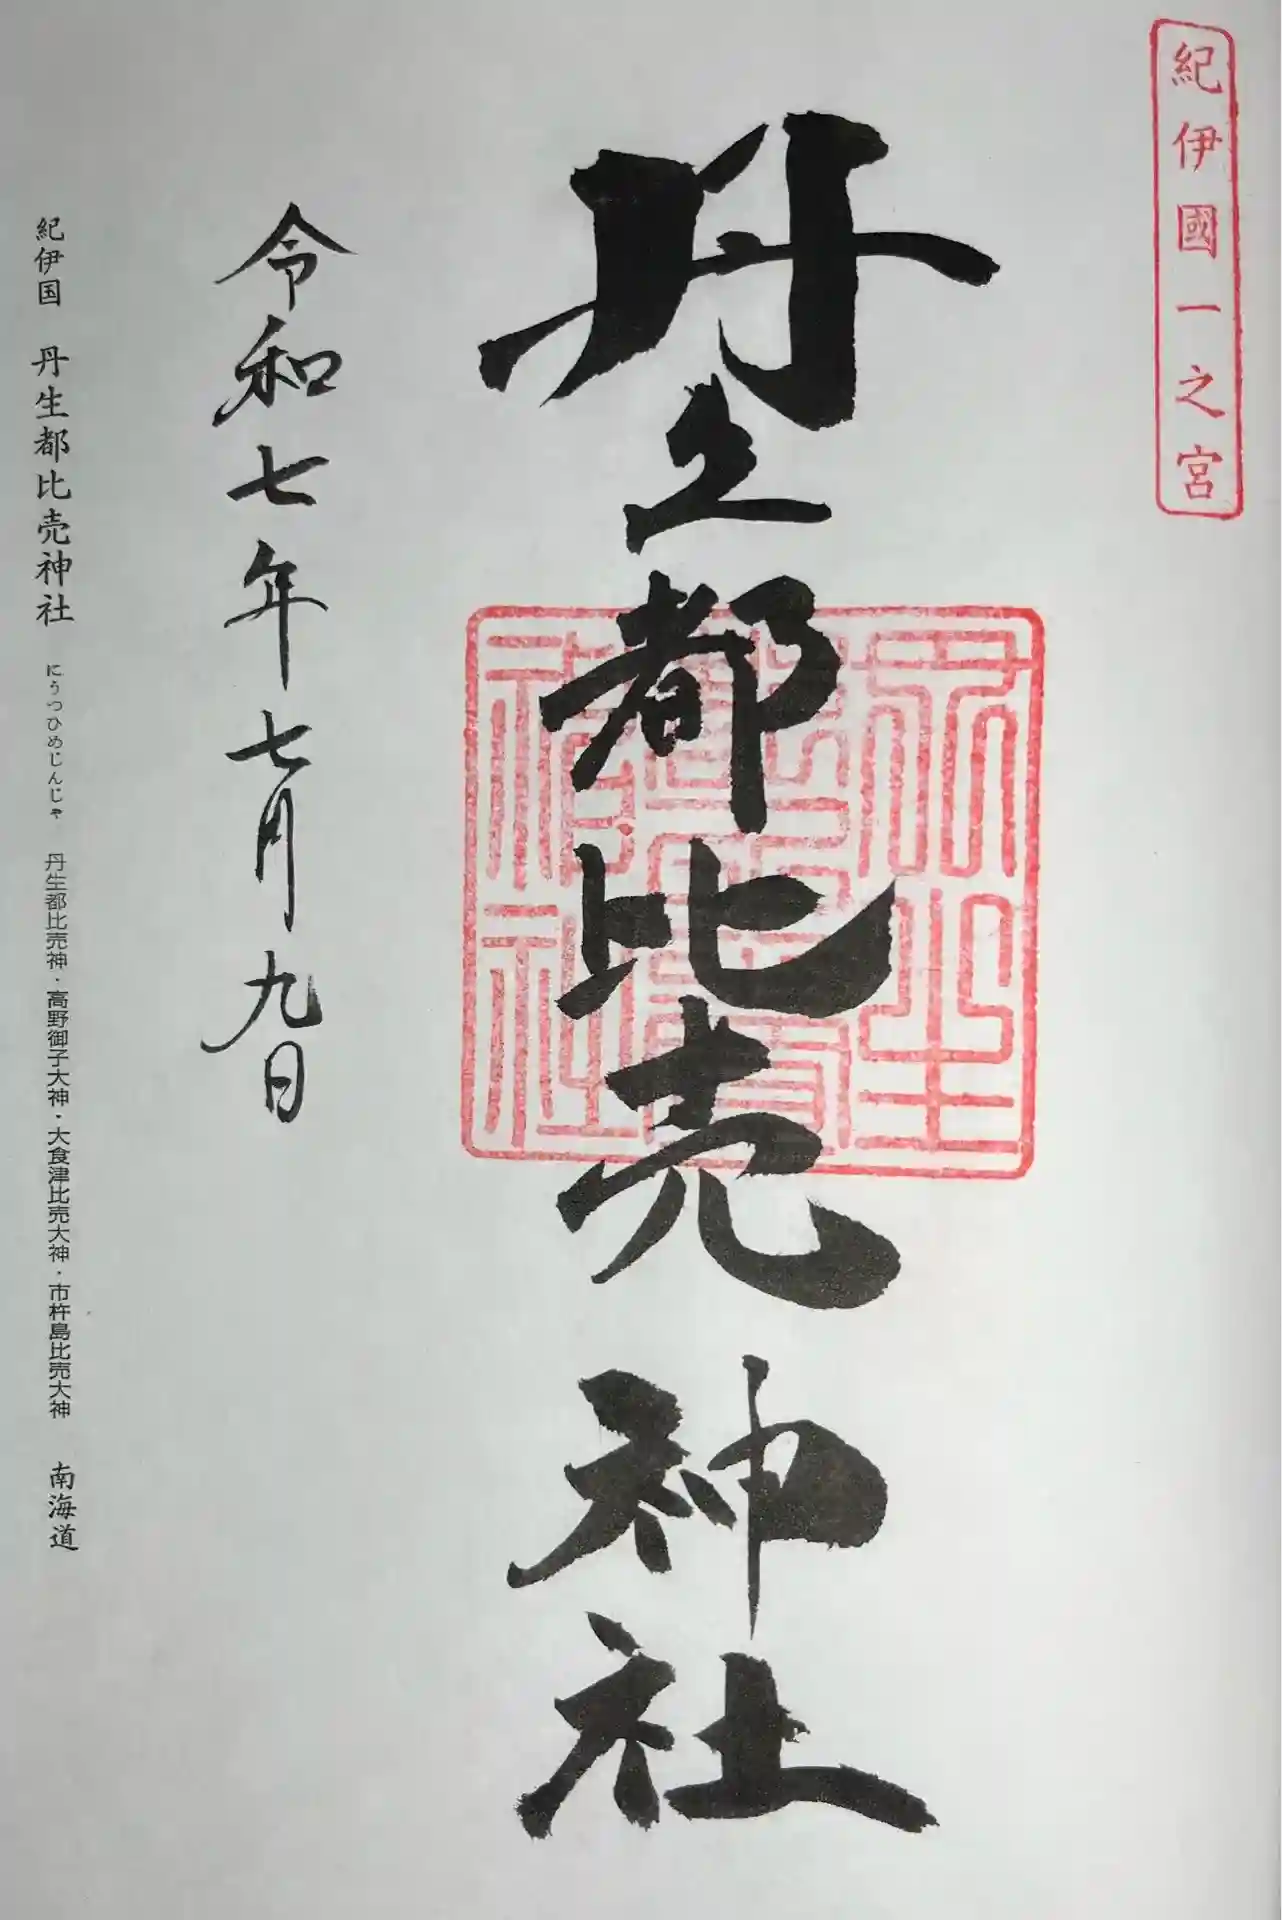 紀伊國一之宮
丹生都比売神社
令和七年七月九日
紀伊国 丹生都比売神社 にうつひめじんじゃ 丹生都比売神・高野御子大神・大食津比売大神・市杵島比売大神 南海道